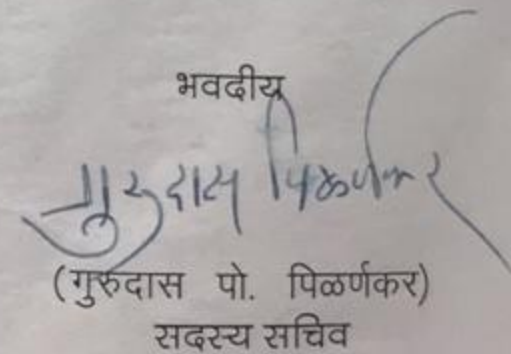 भवदीय
गुरुदास पिळर्णकर
(गुरुदास पो. पिळर्णकर)
सदस्य सचिव